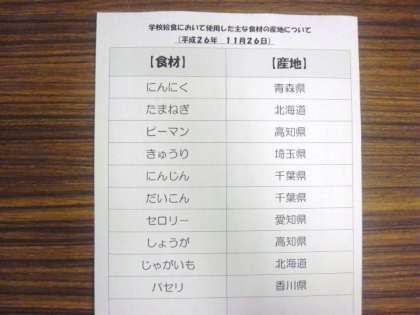 学校給食において使用した主な食材の産地について
(平成26年　11月26日)
【食材】　【産地】
にんにく　青森県
たまねぎ　北海道
ピーマン　高知県
きゅうり　埼玉県
にんじん　千葉県
だいこん　千葉県
セロリー　愛知県
しょうが　高知県
じゃがいも　北海道
パセリ　香川県